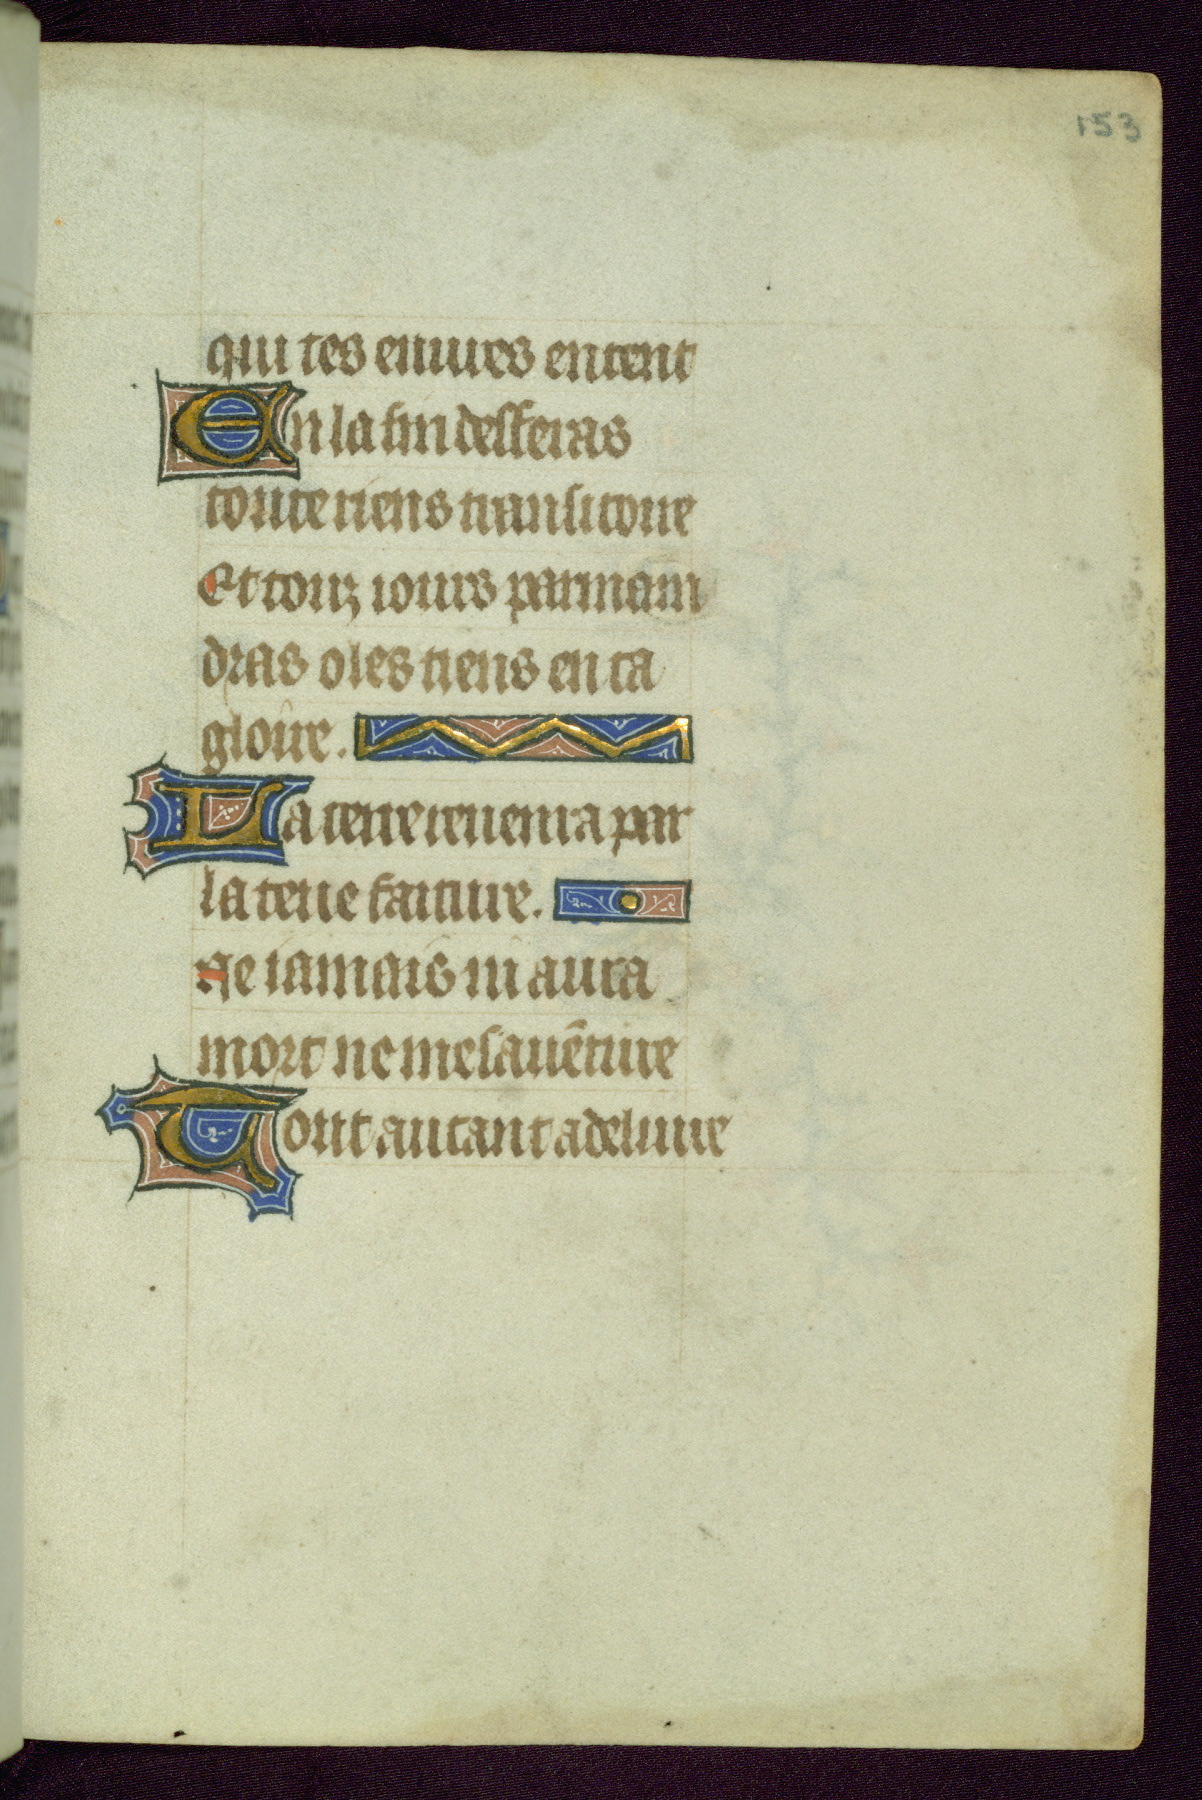 153
qui tes euures entent
En la fin desferas
toute riens transitoire
Et touz iours parmain
dras o les tiens en ta
gloire.
La terre reuenra par
la teue faiture.
Ne iamais ni aura
mort ne mesauẽture
Tout autant a deliure